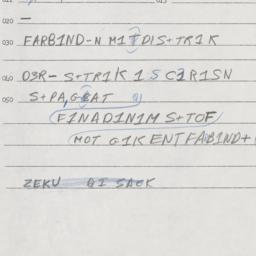 020 —
030 FARB1ND-N M1T DIS+TR1K
040 O3R- S+TR1K 1S C31R1SN
050 S+PA,GEAT
F1NAD1N1M S+TOF
MOT G1K ENTFABIND+
ZEKU GI SACK